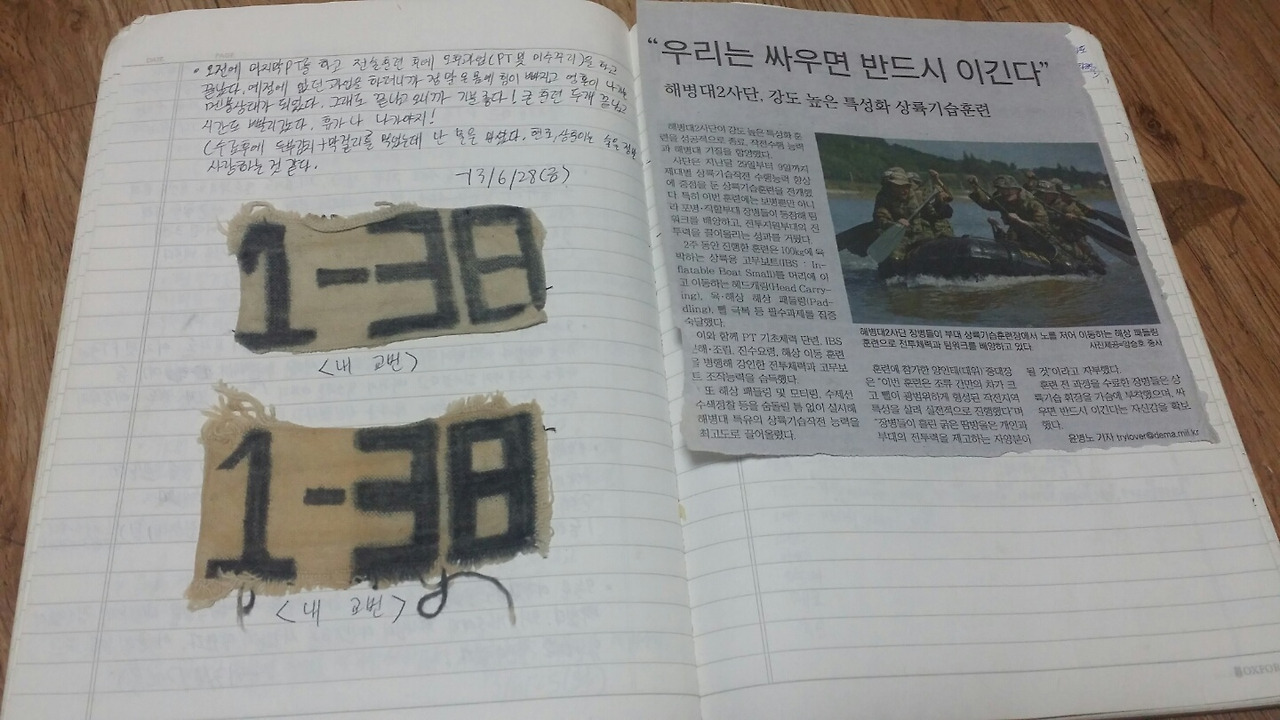 • 오전에 마지막PT를 하고 전술훈련 후에 오후과업(PT및 이수구리)을 하고
끝났다. 예전에 했던 과업을 하려니까 힘이 빠지고 나가
멘붕상태가 되었다. 그래도 끝나고 오니까 기분 좋다! 큰 훈련 두개 끝났고
시간도 빨리갔다. 휴가나 나가야지!
(수료후에 두부김치+막걸리를 먹었는데 난 물을 마셨다. 술을 정말
사랑하는 것 같다.
-13/6/28(금)
1-38
<내 교번>
1-38
<내 교번>
“우리는 싸우면 반드시 이긴다”
해병대2사단, 강도 높은 특성화 상륙기습훈련
해병대2사단이 강도 높은 특성화 훈
련을 성공적으로 종료, 작전수행 능력
과 해병대 기질을 함양했다.
사단은 지난달 29일부터 9일까지
제대별 상륙기습작전 수행능력 향상
에 중점을 둔 상륙기습훈련을 전개했
다. 특히 이번 훈련에는 보병뿐만 아니
라 포병·직할부대 장병들이 동참해 팀
워크를 배양하고, 전투지원부대의 전
투력을 끌어올리는 성과를 거뒀다.
2주 동안 진행한 훈련은 100kg에 육
박하는 상륙용 고무보트(IBS·In-
flatable Boat Small)를 머리에 이
고 이동하는 헤드캐링(Head Carry-
ing), 육·해상 해상 패들링(Pad-
dling), 뻘 극복 등 필수과제를 집중
숙달했다.
이와 함께 PT 기초체력 단련, IBS
분해·조립, 진수요령, 해상 이동 훈련
을 병행해 강인한 전투체력과 고무보
트 조작능력을 습득했다.
또 해상 패들링 및 모터링, 수제선
수색정찰 등을 숨돌릴 틈 없이 실시해
해병대 특유의 상륙기습작전 능력을
최고도로 끌어올렸다.
해병대2사단 장병들이 부대 상륙기습훈련장에서 노를 저어 이동하는 해상 패들링
훈련으로 전투체력과 팀워크를 배양하고 있다.
사진제공=임승호 중사
훈련에 참가한 양인태(대위) 중대장
은 “이번 훈련은 조류 간만의 차가 크
고 뻘이 광범위하게 형성된 작전지역
특성을 살려 실전적으로 진행했다”며
“장병들이 흘린 굵은 땀방울은 개인과
부대의 전투력을 제고하는 자양분이
될 것”이라고 자부했다.
훈련 전 과정을 수료한 장병들은 상
륙기습 휘장을 가슴에 부착했으며, 싸
우면 반드시 이긴다는 자신감을 확보
했다.
윤병노 기자 trylover@dema.mil.kr